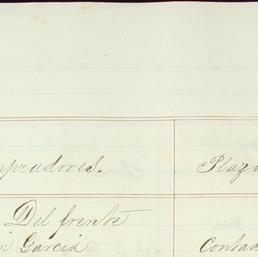 mpradores. Plazo
Del frente
n Garcia Contad